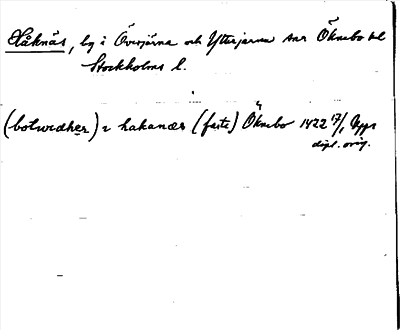 Håknäs, by i Överjärna och Ytterjärna snr Öknebo hd
Stockholms l.
(botwedher) i hakanæs (faste) Öknebo 1422 17/1 Upps
dipl. orig.